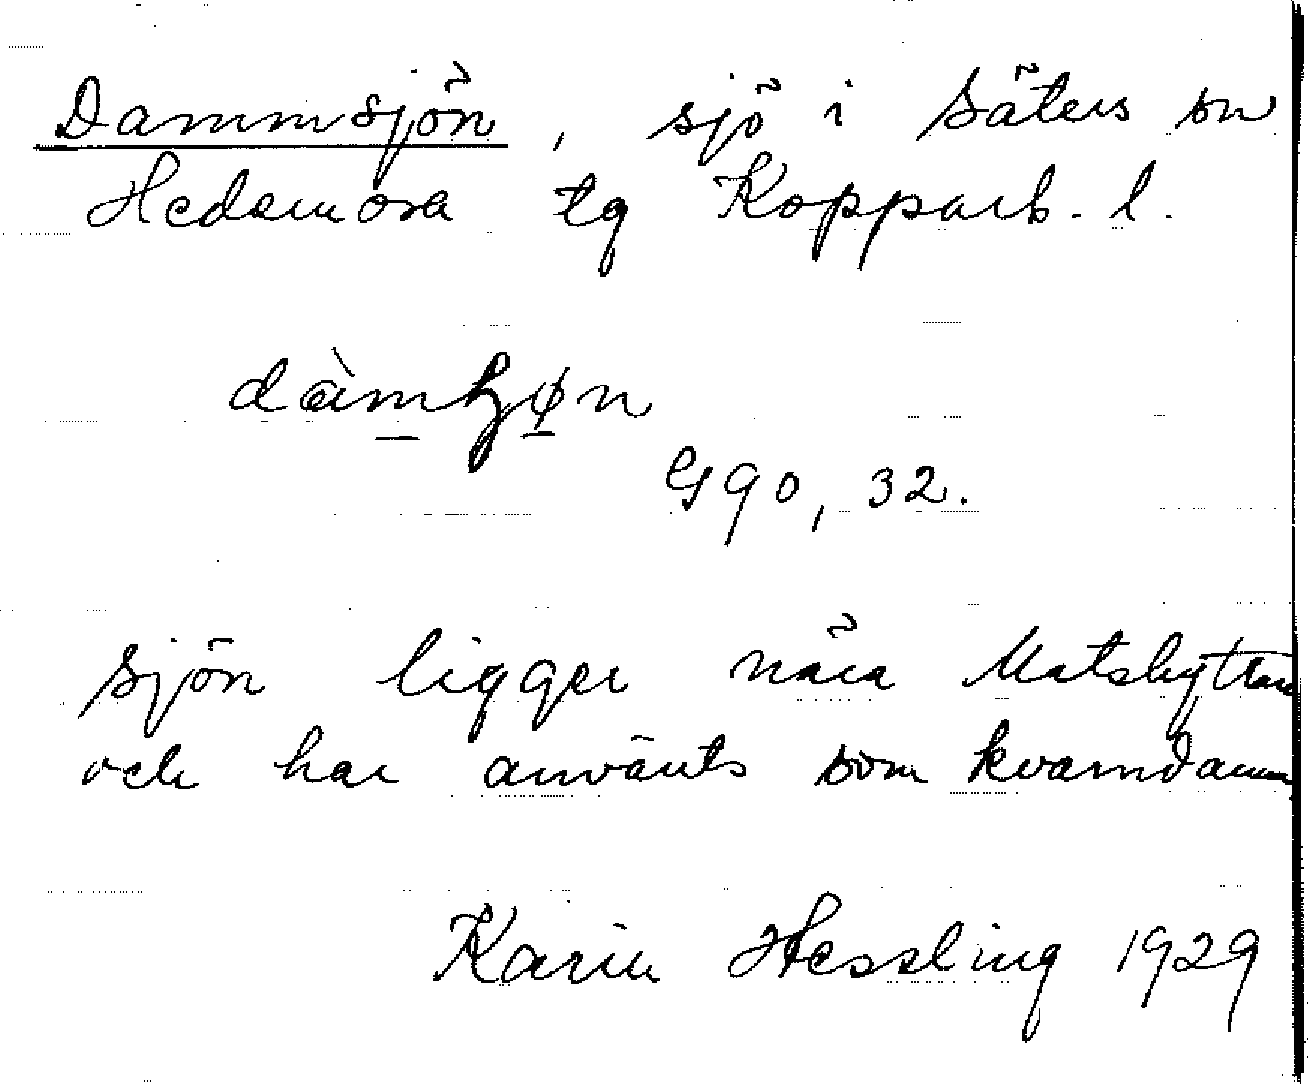 Dammsjön, sjö i Säters sn
Hedemora tg Kopparb. l.
G 90, 32.
sjön ligger nära Matshyttan
och har använts som kvarndamm
Karin Hessling 1929